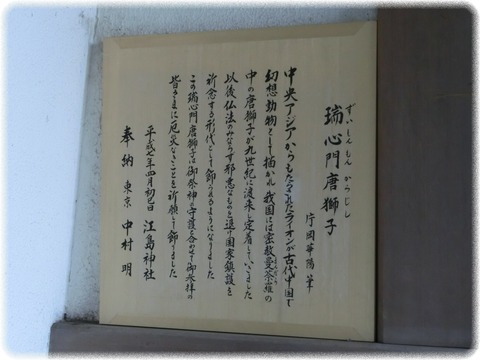 ずいしんもん からじし
瑞心門唐獅子
片岡華陽 筆
中央アジアからもたらされたライオンが古代中国で
幻想動物として描かれ我国には密教曼荼羅の
中の唐獅子が九世紀に渡来し定着していきました
以後仏法のみならず邪悪なものを退け国家鎮護を
祈念する形代として飾られるようになりました
この瑞心門唐獅子は御祭神の守護と合わせて御参拝の
皆さまに厄災なきことを祈願して飾りました
平成七年四月初巳 江島神社
奉納 東京 中村 明